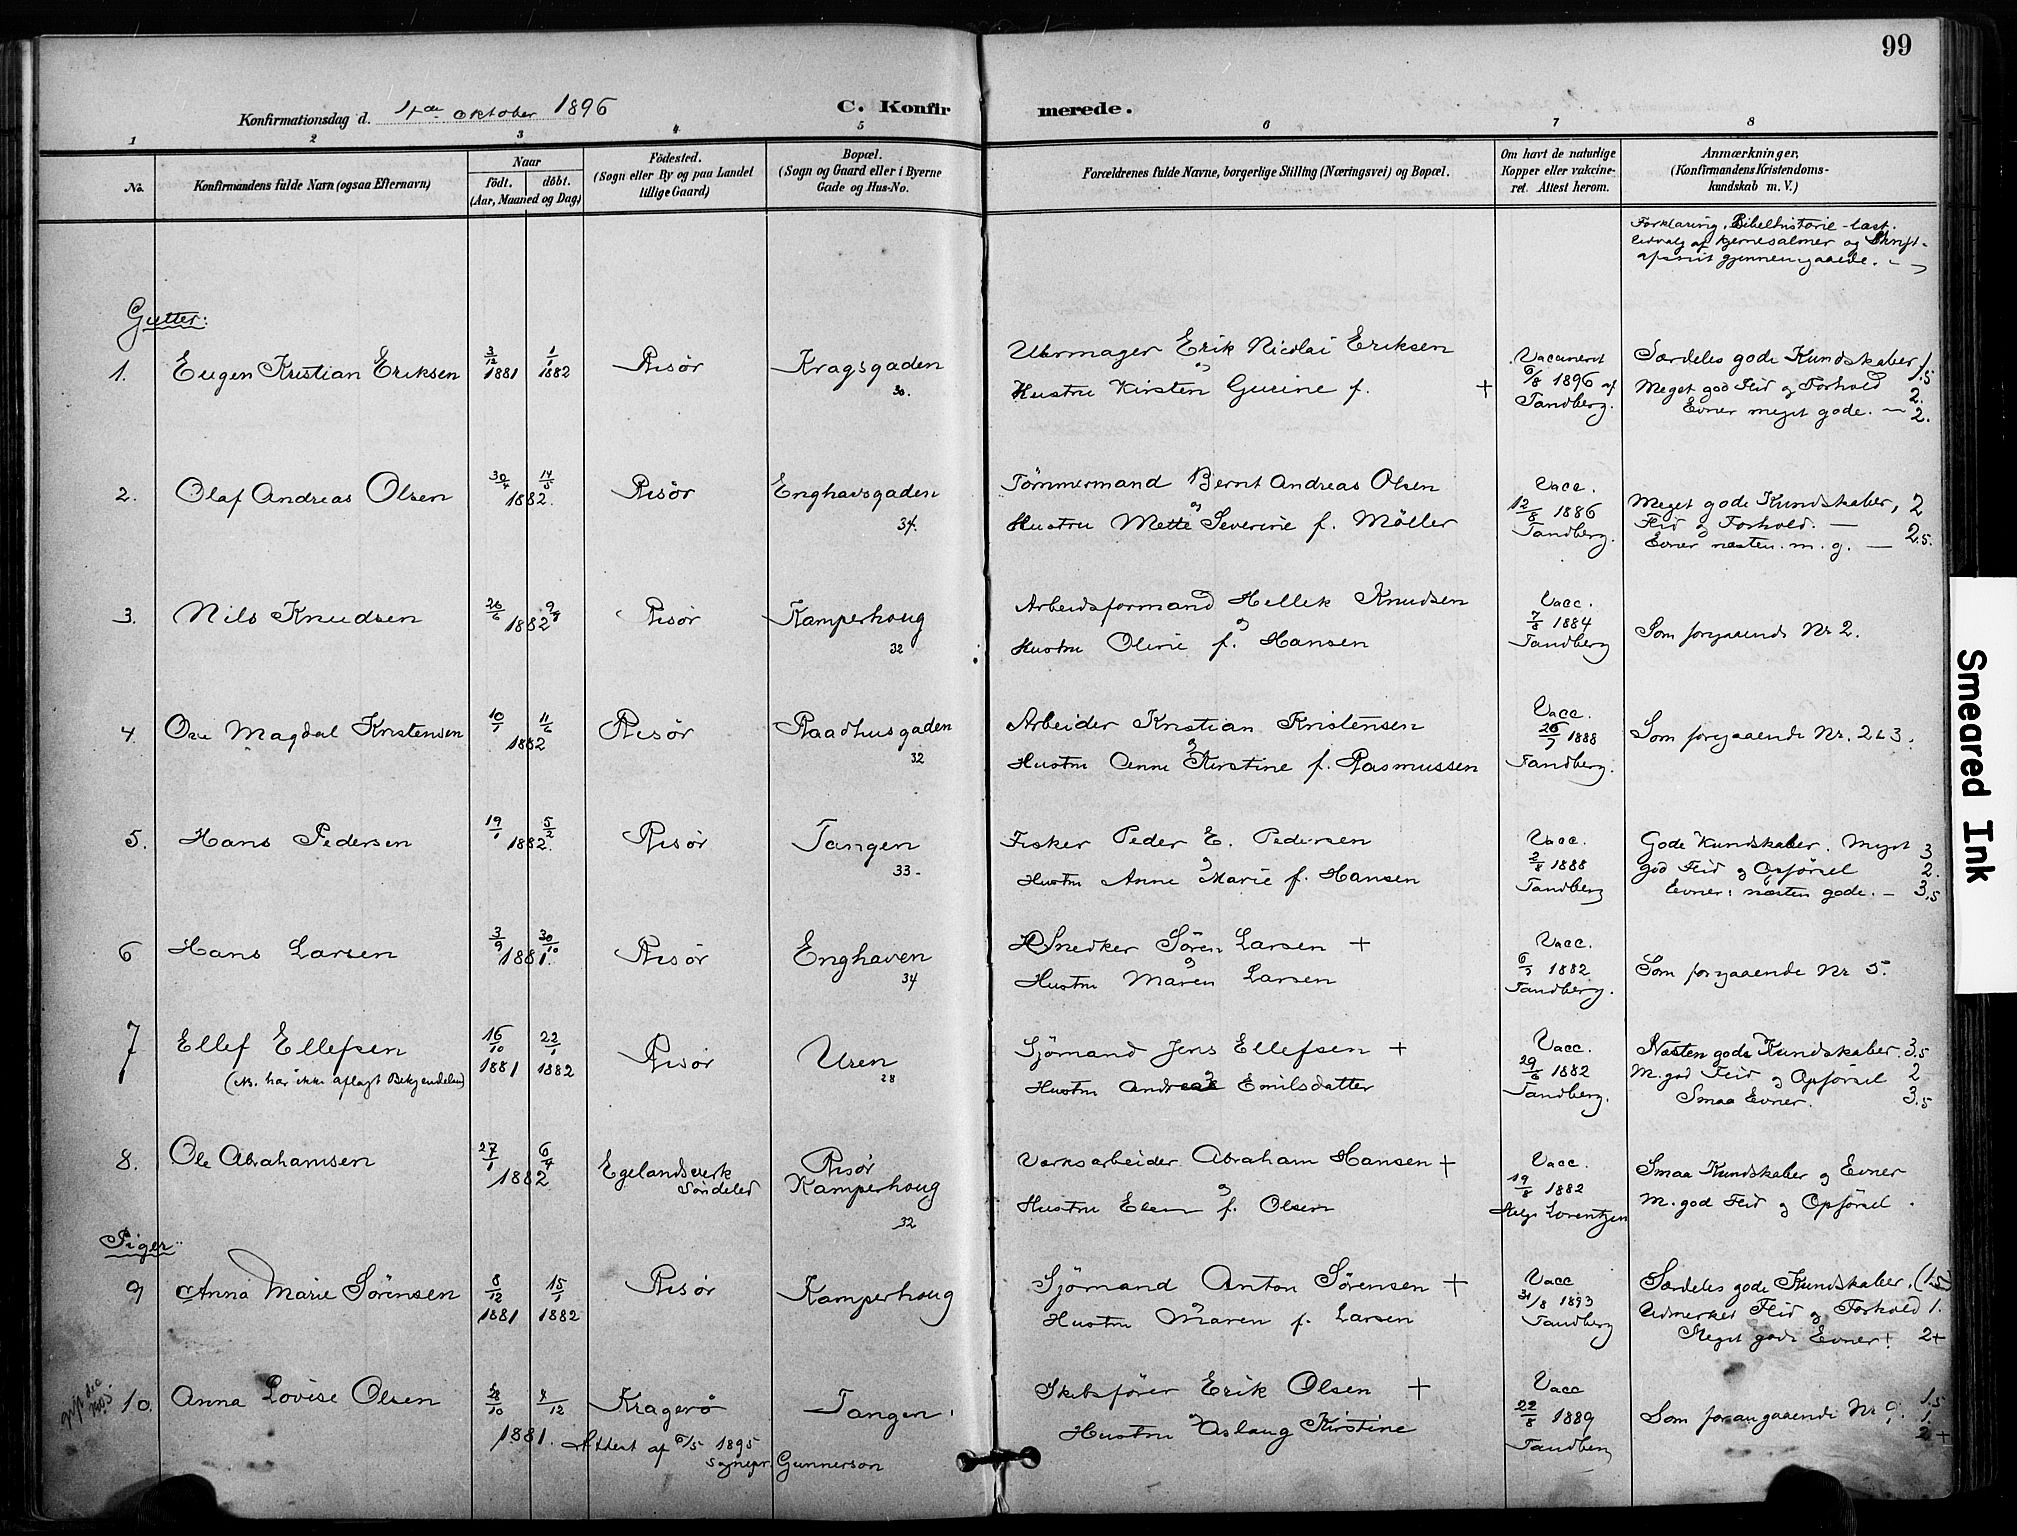 99
Konfirmationsdag d. 4de Oktober 1896
C. Konfirmerede.
1 2 3 4 5 6 7 8
No.
Konfirmandens fulde Navn (ogsaa Efternavn)
Naar
født. døbt.
(Aar, Maaned og Dag)
Fødested.
(Sogn eller By og paa Landet
tillige Gaard)
Bopæl.
(Sogn og Gaard eller i Byerne
Gade og Hus-No.
Forældrenes fulde Navne, borgerlige Stilling (Næringsvei) og Bopæl.
Om havt de naturlige
Kopper eller vakcine-
ret. Attest herom.
Anmærkninger,
(Konfirmandens Kristendoms-
kundskab m. V.)
Forklaring, Bibelhistorie læst.
Udvalg af Kjernesalmer og Skrift-
afsnit gjennemgaaede.
Gutter:
1. Eugen Kristian Eriksen 3/12 1881 1/1 1882 Risør Kragsgaden 30.
Uhrmager Erik Nicolai Eriksen
og
Hustru Kirsten Gurine f. +
Vaccineret
6/8 1896 af
Tandberg.
Særdeles gode Kundskaber, 1.5
Meget god Flid og Forhold 2.
Evner meget gode. — 2.
2. Olaf Andreas Olsen 30/4 14/5 1882. Risør Enghavsgaden 34.
Tømmermand Bernt Andreas Olsen
og
Hustru Mette Severine f. Møller
Vacc.
12/8 1886
Tandberg.
Meget gode Kundskaber, 2
Flid og Forhold. —
Evner næsten m. g. — 2.5.
3. Nils Knudsen 26/6 9/9 1882 Risør Kamperhoug 32
Arbeidsformand Hellek Knudsen
og
Hustru Oline f. Hansen
Vacc.
7/8 1884
Tandberg
Som forgaaende Nr 2.
4. Ole Magdal Kristensen 10/1 11/6 1882 Risør Raadhusgaden 32
Arbeider Kristian Kristensen
og
Hustru Anne Kirstine f. Rasmussen
Vacc.
26/7 1888
Tandberg.
Som forgaaende Nr. 2 & 3.
5. Hans Pedersen 19/1 5/2 1882. Risør Tangen 33.
Fisker Peder E. Pedersen
og
Hustru Anne Marie f. Hansen
Vacc.
2/8 1888
Tandberg
Gode Kundskaber. Meget 3
god Flid og Opførsel 2.
Evner: næsten gode. — 3.5
6 Hans Larsen 3/9 30/10 1881. Risør Enghaven 34
Snedker Søren Larsen +
og
Hustru Maren Larsen
Vacc.
6/7 1882
Tandberg.
Som forgaaende Nr 5.
7 Ellef Ellefsen 16/10 1881 22/1 1882 Risør Uren 28
(NB. har ikke aflagt Bekjendelse)
Sjömand Jens Ellefsen +
Hustru Andrea Emilsdatter
Vacc.
29/6 1882
Tandberg.
Næsten gode Kundskaber. 3.5
M. god Flid og Opførsel 2
Smaa Evner. 3.5
8. Ole Abrahamsen 27/1 6/4 1882 Egelandsverk
Søndeled
Risør
Kamperhoug
32
Værksarbeider Abraham Hansen +
og
Hustru Elen f. Olsen
Vacc.
19/8 1882
Helge Lorentzen
Smaa Kundskaber og Evner
M. god Flid og Opførsel.
Piger:
9 Anna Marie Sørensen 8/12 1881 15/1 1882 Risør Kamperhoug
Sjömand Anton Sørensen +
Hustru Maren f. Larsen
Vacc
31/8 1893
Tandberg
Særdeles gode Kundskaber. (1.5)
Udmerket Flid og Forhold 1.
Meget gode Evner! 2+
10. Anna Lovise Olsen 28/10 /12 1881. Kragerø Tangen
Attest af 6/5 1895
Sognepr. Gunnerson
Skibsfører Erik Olsen +
og
Hustru Aslaug Kirstine
Vacc
22/8 1889
Tandberg
Som forangaaende Nr 9. 1.5
1.
2+
Smeared Ink